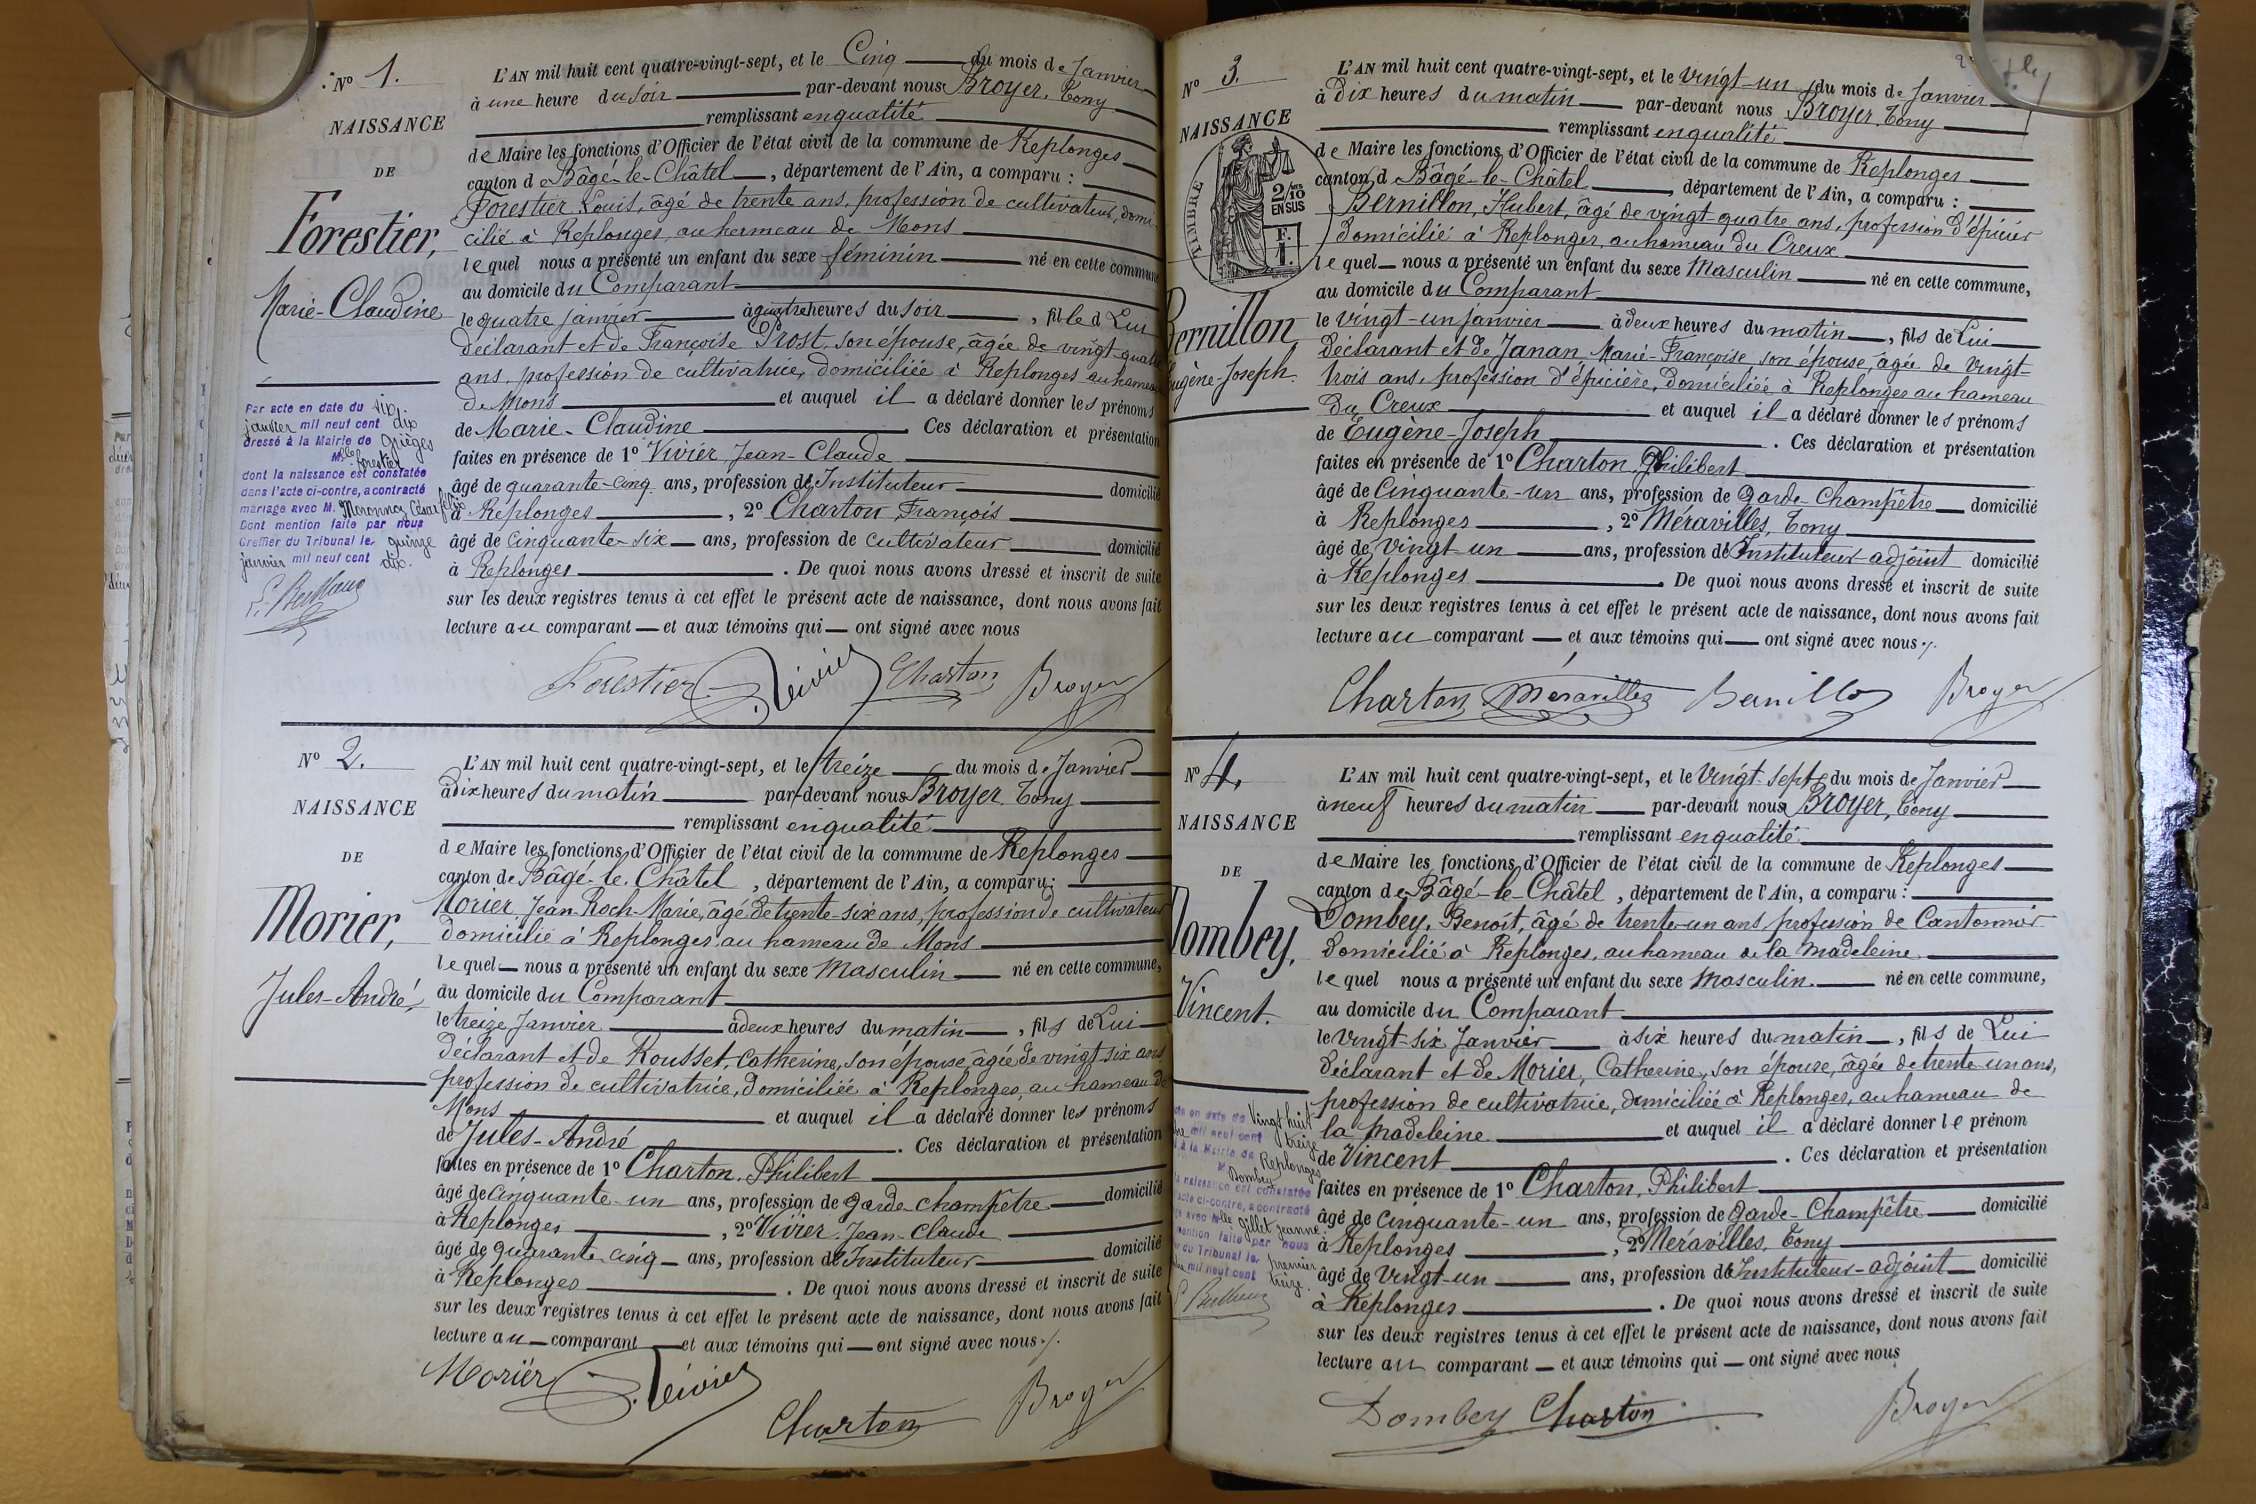 N° 1.
NAISSANCE
DE
Forestier,
Marie-Claudine
Par acte en date du six
janvier mil neuf cent dix
dressé à la Mairie de Grièges
Mlle Forestier
dont la naissance est constatée
dans l'acte ci-contre, a contracté
mariage avec M.
Dont mention faite par nous
Greffier du Tribunal le quinze
janvier mil neuf cent dix.
L'AN mil huit cent quatre-vingt-sept, et le Cinq du mois de Janvier
à une heure du soir par-devant nous Broyer, Tony
remplissant en qualité
de Maire les fonctions d'Officier de l'état civil de la commune de Replonges
canton de Bâgé-le-Châtel, département de l'Ain, a comparu :
Forestier Louis, âgé de trente ans, profession de cultivateur, domi-
cilié à Replonges, au hameau de Mons
lequel nous a présenté un enfant du sexe féminin né en cette commune
au domicile du Comparant
le quatre janvier à quatre heures du soir, fille d Lui
déclarant et de Françoise Prost, son épouse, âgée de vingt-quatre
ans, profession de cultivatrice, domiciliée à Replonges au hameau
de Mons et auquel il a déclaré donner les prénoms
de Marie-Claudine. Ces déclaration et présentation
faites en présence de 1° Vivier, Jean-Claude
âgé de quarante-cinq ans, profession d'Instituteur domicilié
à Replonges, 2° Charton, François
âgé de cinquante-six ans, profession de cultivateur domicilié
à Replonges. De quoi nous avons dressé et inscrit de suite
sur les deux registres tenus à cet effet le présent acte de naissance, dont nous avons fait
lecture au comparant et aux témoins qui ont signé avec nous
Forestier Vivier Charton Broyer
N° 2.
NAISSANCE
DE
Morier,
Jules-André,
L'AN mil huit cent quatre-vingt-sept, et le treize du mois de Janvier
à dix heures du matin par-devant nous Broyer, Tony
remplissant en qualité
de Maire les fonctions d'Officier de l'état civil de la commune de Replonges
canton de Bâgé-le-Châtel, département de l'Ain, a comparu :
Morier, Jean Roch-Marie, âgé de trente-six ans, profession de cultivateur
domicilié à Replonges au hameau de Mons
lequel nous a présenté un enfant du sexe Masculin né en cette commune,
au domicile du Comparant
le treize Janvier à deux heures du matin, fils de Lui
déclarant et de Rousset, Catherine, son épouse, âgée de vingt-six ans
profession de cultivatrice, domiciliée à Replonges, au hameau de
Mons et auquel il a déclaré donner les prénoms
de Jules-André. Ces déclaration et présentation
faites en présence de 1° Charton, Philibert
âgé de cinquante-un ans, profession de garde champêtre domicilié
à Replonges, 2° Vivier, Jean-Claude
âgé de quarante-cinq ans, profession d'Instituteur domicilié
à Replonges. De quoi nous avons dressé et inscrit de suite
sur les deux registres tenus à cet effet le présent acte de naissance, dont nous avons fait
lecture au comparant et aux témoins qui ont signé avec nous ./.
Morier Vivier
Charton Broyer
N° 3.
NAISSANCE
TIMBRE
2/10 EN SUS
F. 1.
Bernillon,
Eugène-Joseph.
L'AN mil huit cent quatre-vingt-sept, et le vingt-un du mois de Janvier
à dix heures du matin par-devant nous Broyer, Tony
remplissant en qualité
de Maire les fonctions d'Officier de l'état civil de la commune de Replonges
canton d Bâgé-le-Châtel, département de l'Ain, a comparu :
Bernillon, Hubert, âgé de vingt quatre ans, profession d'épicier
domicilié à Replonges, au hameau du Creux
lequel nous a présenté un enfant du sexe Masculin né en cette commune,
au domicile du Comparant
le vingt-un janvier à deux heures du matin, fils de Lui
déclarant et de Janan, Marie-Françoise, son épouse, âgée de vingt-
trois ans, profession d'épicière, domiciliée à Replonges au hameau
du Creux et auquel il a déclaré donner les prénoms
de Eugène-Joseph. Ces déclaration et présentation
faites en présence de 1° Charton, Philibert
âgé de cinquante-un ans, profession de garde-Champêtre domicilié
à Replonges, 2° Méravilles, Tony
âgé de vingt-un ans, profession d'Instituteur adjoint domicilié
à Replonges. De quoi nous avons dressé et inscrit de suite
sur les deux registres tenus à cet effet le présent acte de naissance, dont nous avons fait
lecture au comparant et aux témoins qui ont signé avec nous ./.
Charton Méravilles Bernillon Broyer
N° 4.
NAISSANCE
DE
Dombey,
Vincent.
vingt huit
mil neuf cent treize
à la Mairie de Replonges
M. Dombey
naissance est constatée
acte ci-contre, a contracté
avec Mlle Gillet Jeanne
mention faite par nous
du Tribunal le premier
mil neuf cent treize.
L'AN mil huit cent quatre-vingt-sept, et le vingt-sept du mois de Janvier
à neuf heures du matin par-devant nous Broyer, Tony
remplissant en qualité
de Maire les fonctions d'Officier de l'état civil de la commune de Replonges
canton de Bâgé-le-Châtel, département de l'Ain, a comparu :
Dombey, Benoît, âgé de trente-un ans profession de Cantonnier
domicilié à Replonges, au hameau de la Madeleine
lequel nous a présenté un enfant du sexe Masculin né en cette commune,
au domicile du Comparant
le vingt-six Janvier à six heures du matin, fils de Lui
déclarant et de Morier, Catherine, son épouse, âgée de trente-un ans,
profession de cultivatrice, domiciliée à Replonges, au hameau de
la Madeleine et auquel il a déclaré donner le prénom
de Vincent. Ces déclaration et présentation
faites en présence de 1° Charton, Philibert
âgé de cinquante-un ans, profession de garde-Champêtre domicilié
à Replonges, 2° Méravilles, Tony
âgé de vingt-un ans, profession d'Instituteur-adjoint domicilié
à Replonges. De quoi nous avons dressé et inscrit de suite
sur les deux registres tenus à cet effet le présent acte de naissance, dont nous avons fait
lecture au comparant et aux témoins qui ont signé avec nous
Dombey Charton Broyer